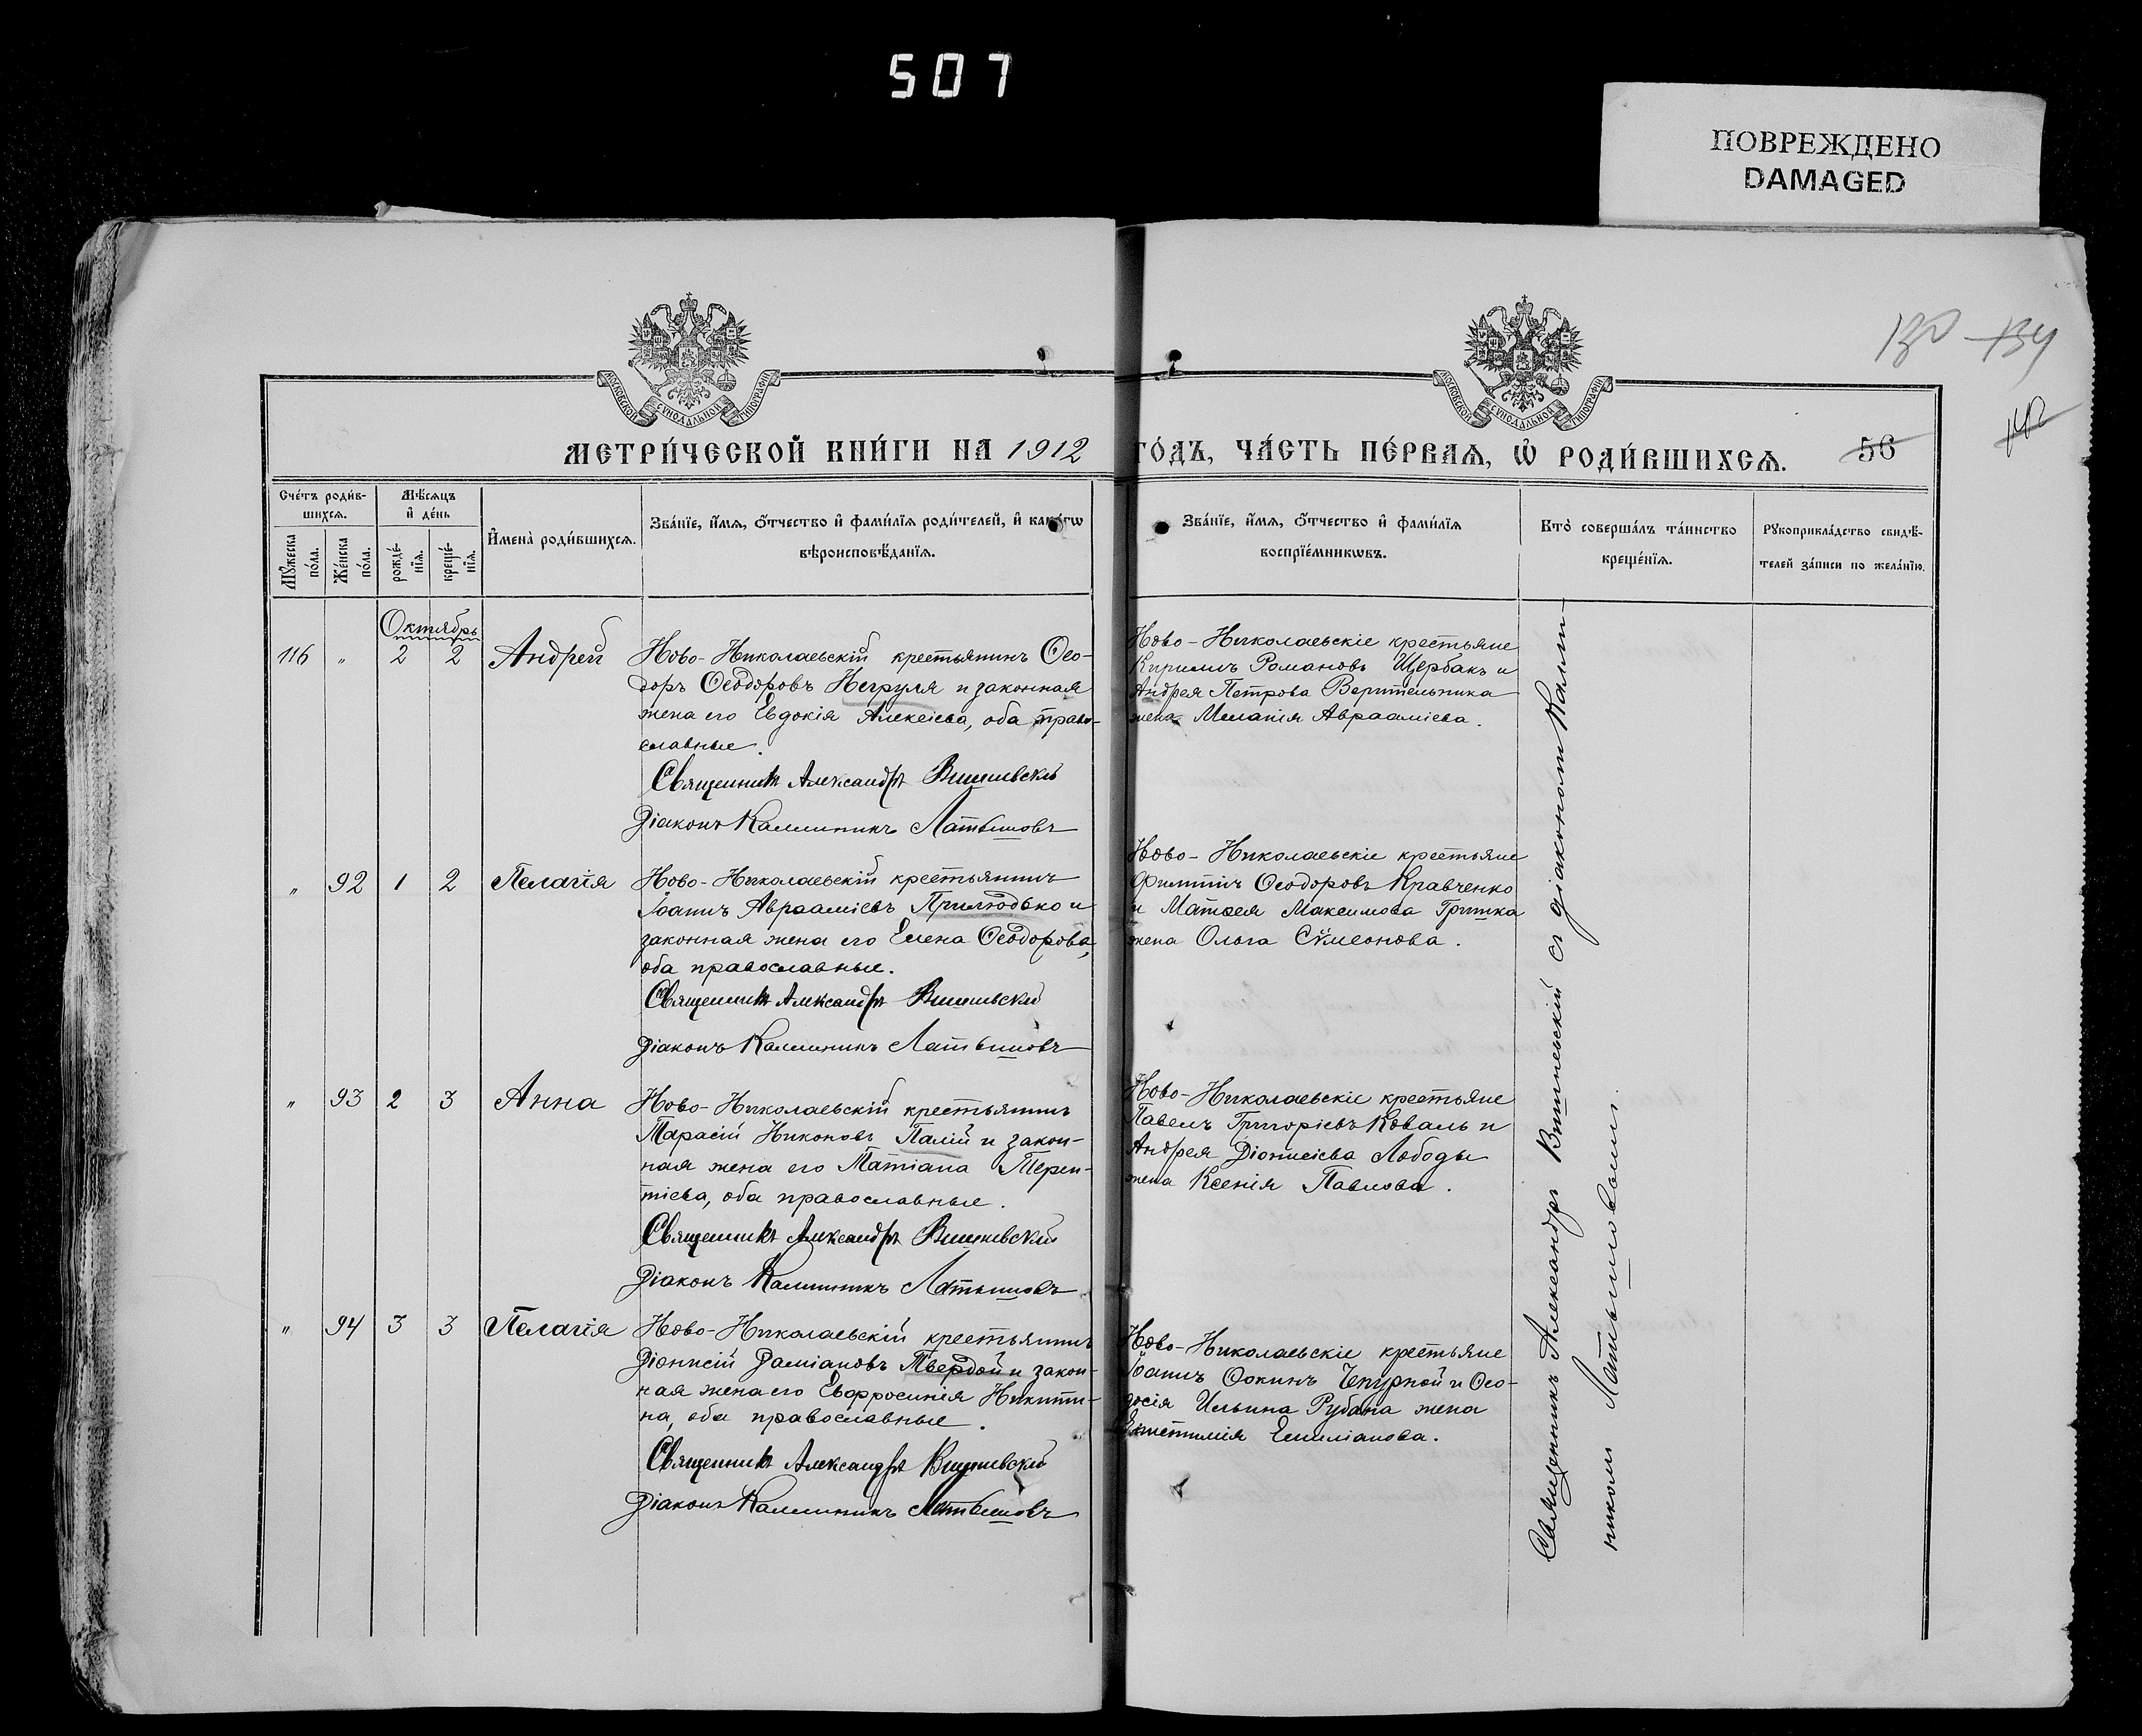 507
ПОВРЕЖДЕНО
DAMAGED
МОСКОВСКОЙ СѴНОДАЛЬНОЙ ТИПОГРАФІИ
МОСКОВСКОЙ СѴНОДАЛЬНОЙ ТИПОГРАФІИ
МЕТРИ́ЧЕСКОЙ КНИ́ГИ НА 1912 ГО́ДЪ, ЧА́СТЬ ПЕ́РВАЯ, Ѡ РОДИ́ВШИХСЯ. 56
Сче́тъ роди́в-
шихся.
Мѣ́сяцъ
и҆ де́нь
Мꙋ́жеска по́ла.
Же́нска по́ла.
рожде́-
нїя.
креще́-
нїя.
И҆мена̀ роди́вшихся.
Зва́нїе, и҆́мя, ѻ҆́тчество и҆ фами́лїя роди́телей, и҆ како́гѡ
вѣроисповѣ́данїя.
Зва́нїе, и҆́мя, ѻ҆́тчество и҆ фами́лїя
воспрїе́мникѡвъ.
Кто̀ соверша́лъ та́инство
креще́нїя.
Рꙋкоприкла́дство свидѣ́-
телей за́писи по жела́нїю.
Октябрь
116 " 2 2 Андрей
Ново-Николаевскій крестьянинъ Ѳео-
доръ Ѳеодоровъ Негруля и законная
жена его Евдокія Алексіева, оба право-
славные.
Священникъ Александръ Вишневскій
Діаконъ Каллиникъ Латышовъ
Ново-Николаевскіе крестьяне
Кириллъ Романовъ Щербакъ и
Андрея Петрова Верительника
жена Меланія Авраамiева.
" 92 1 2 Пелагія
Ново-Николаевскій крестьянинъ
Іоаннъ Авраамiевъ Прилюдько и
законная жена его Елена Ѳеодорова,
оба православные.
Священникъ Александръ Вишневскій
Діаконъ Каллиникъ Латышовъ
Ново-Николаевскіе крестьяне
Филиппъ Ѳеодоровъ Кравченко
и Матѳея Максимова Гришка
жена Ольга Сѵмеонова.
" 93 2 3 Анна
Ново-Николаевскій крестьянинъ
Тарасій Никоновъ Палій и закон-
ная жена его Татіана Терен-
тіева, оба православные.
Священникъ Александръ Вишневскій
Діаконъ Каллиникъ Латышовъ
Ново-Николаевскіе крестьяне
Павелъ Григоріевъ Коваль и
Андрея Діонисіева Лободы
жена Ксенія Павлова.
" 94 3 3 Пелагія
Ново-Николаевскій крестьянинъ
Діонисій Даміановъ Твердой и закон-
ная жена его Евфросинія Никити-
на, оба православные.
Священникъ Александръ Вишневскій
Діаконъ Каллиникъ Латышовъ
Ново-Николаевскіе крестьяне
Іоаннъ Ѳокинъ Чепурной и Ѳео-
досія Ильина Рубана жена
Епистимія Емиліанова.
Священникъ Александръ Вишневскій съ діакономъ Калли-
никомъ Латышовымъ.